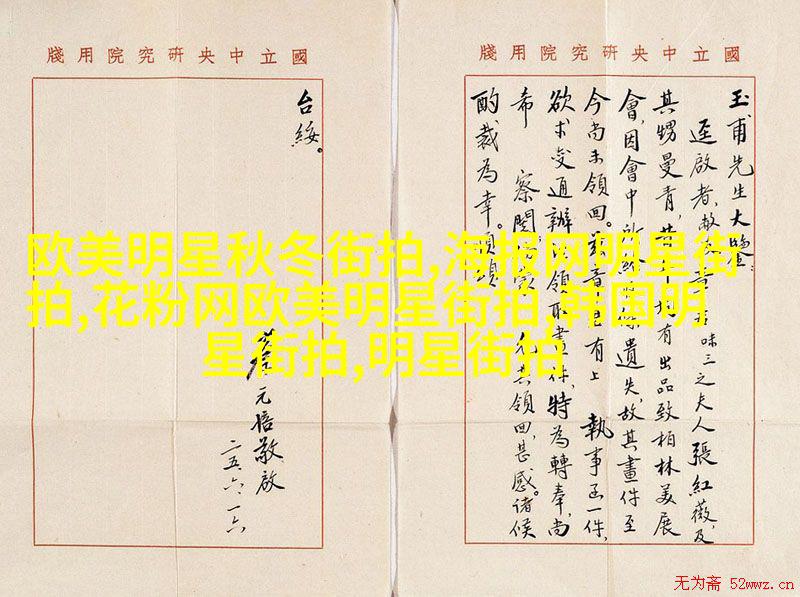 國立中央研究院用牋
玉甫先生大鑒
逕啟者,敝友章味三之夫人張紅薇,及
其甥曼青,昔年均有出品致柏林美展
會,因會中遺失,故其畫件至
今尚未領回。已有上 執事函一件,
欲求變通辦領取畫件,特為轉奉,尚
希 察閱 允其領回,甚感。諸候
酌裁為幸。順頌
國立中央研究院用牋
台綏。
蔡元培敬啟
二五、六、一六
欧美明星秋冬街拍,海报网明星街
拍,花粉网欧美明星街拍,韩国明
星街拍,明星街拍
无为斋 52wwz.cn